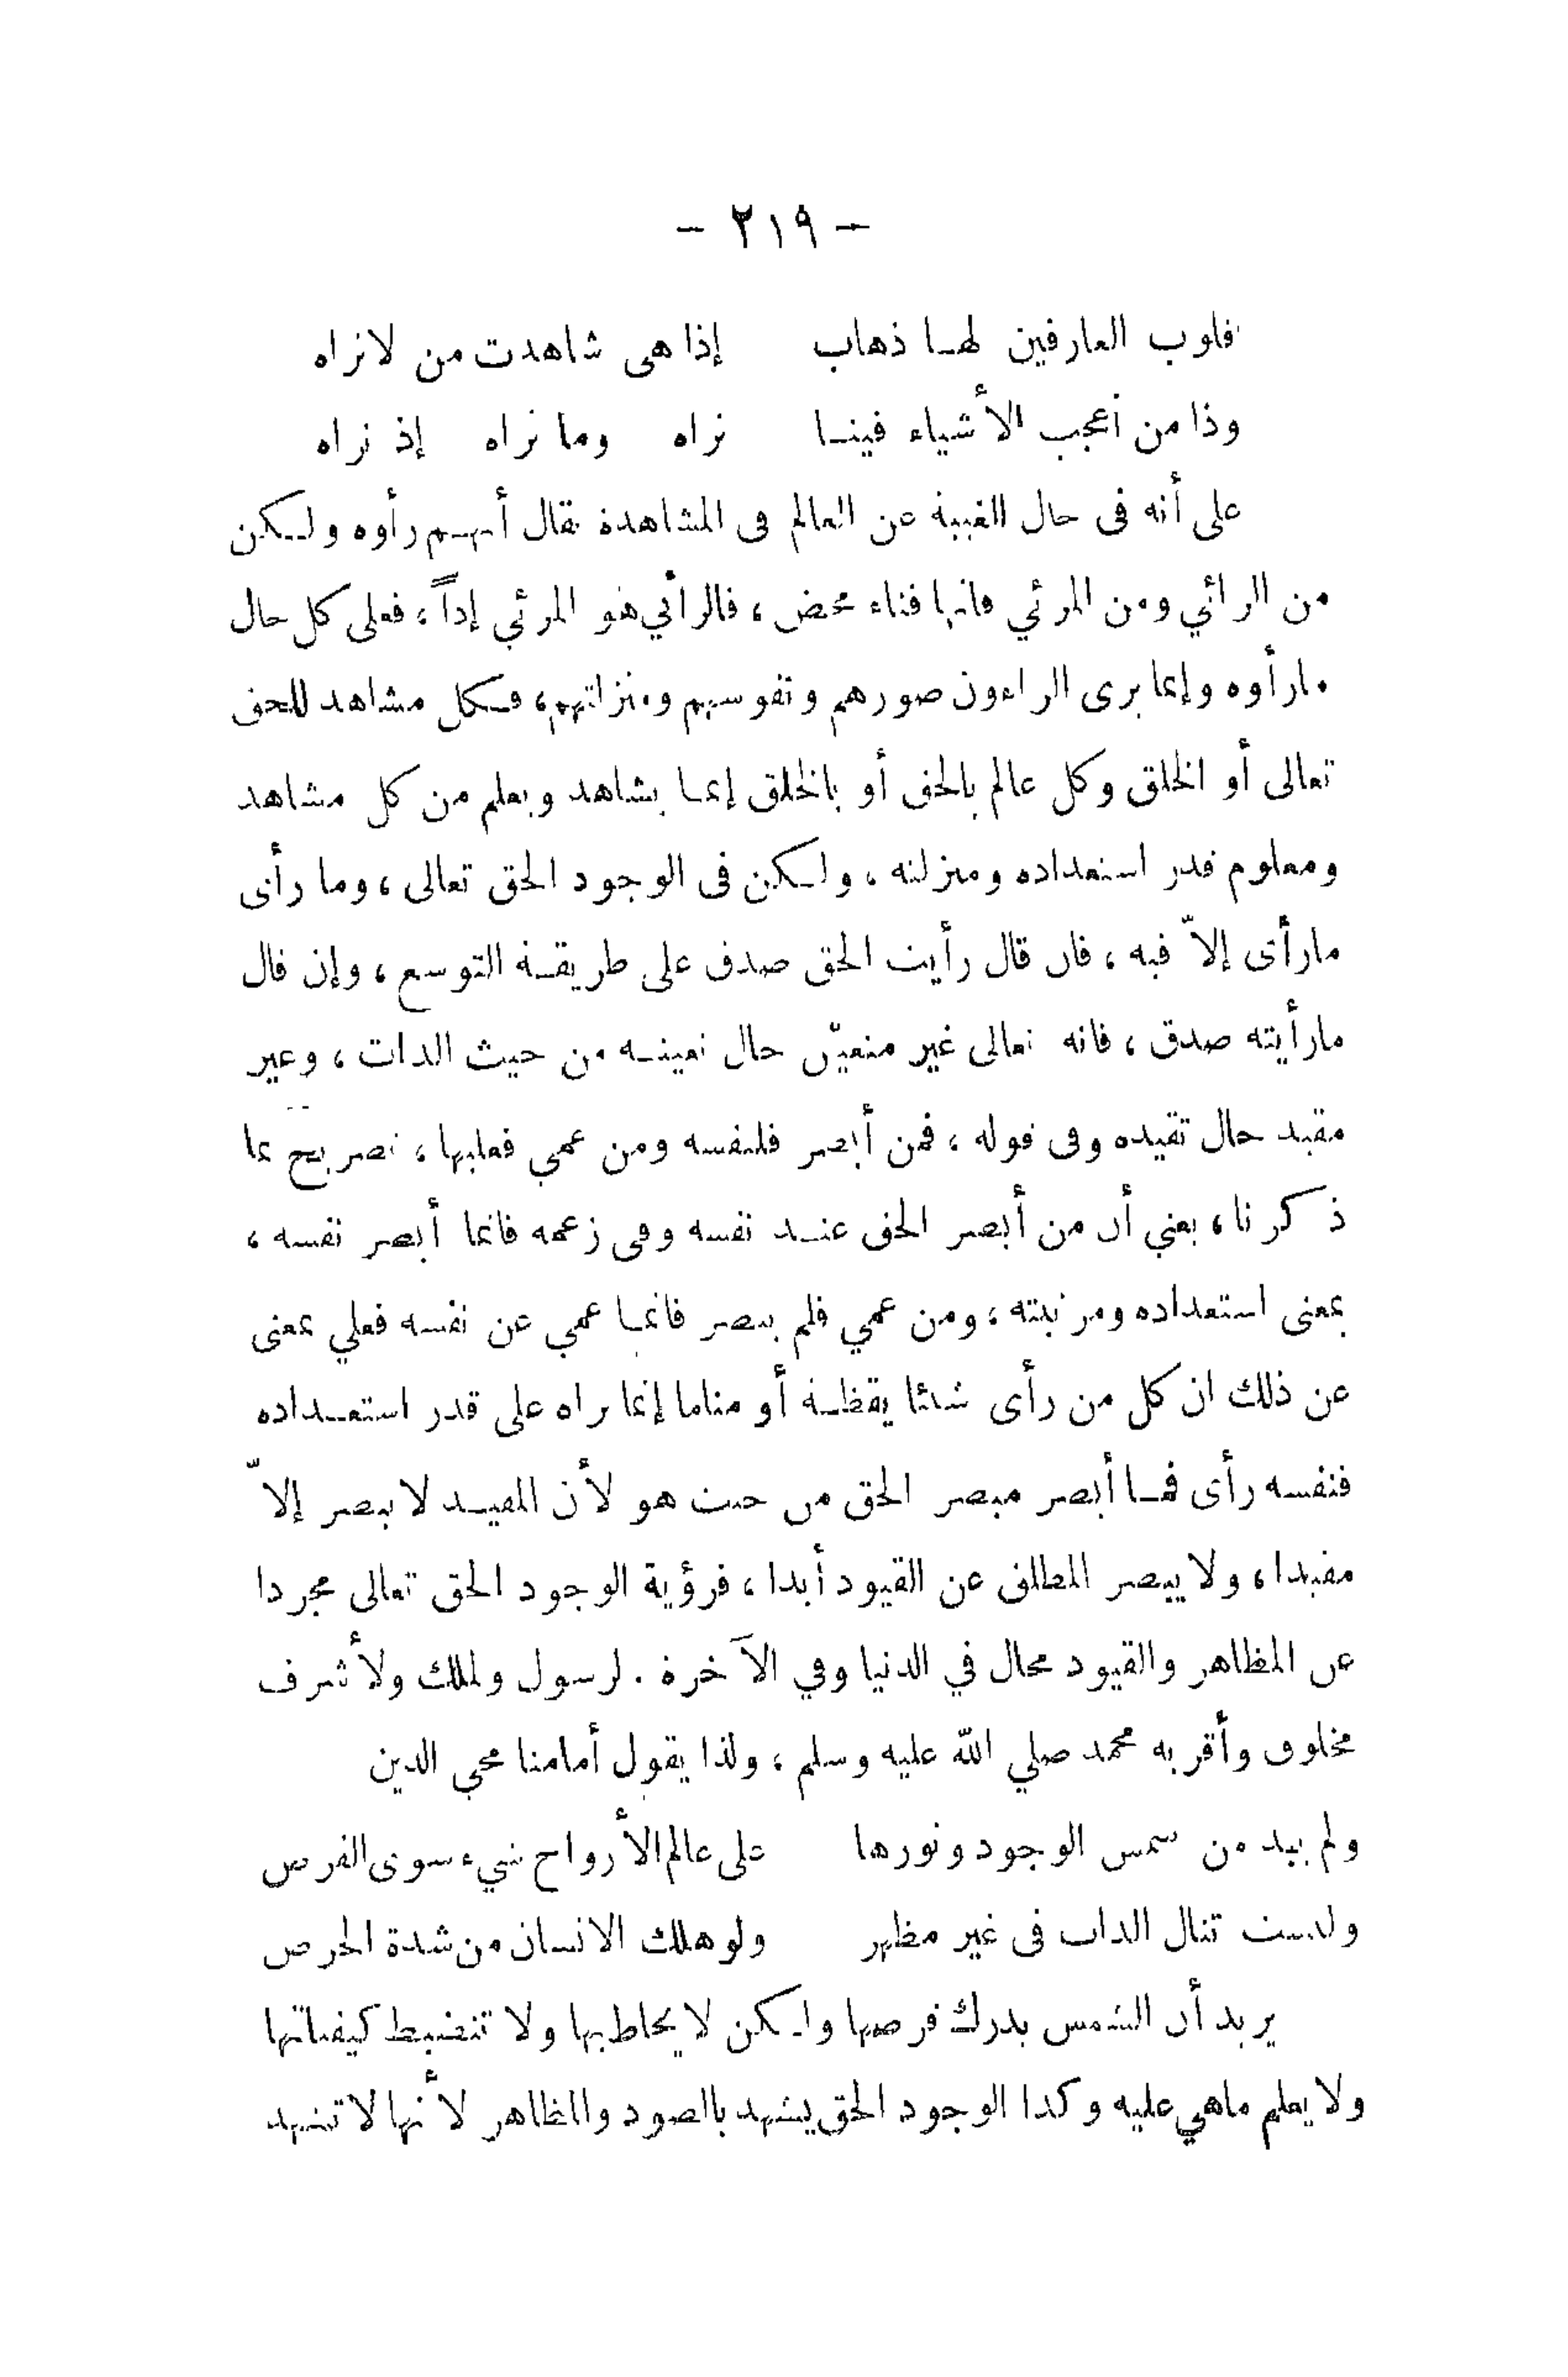 - ٢١٩ -
قلوب العارفين لهـا ذهاب إذا هى شاهدت من لانراه
وذا من أعجب الأشياء فينـا نراه وما نراه إذ نراه
على أنه فى حال الغيبة عن العالم فى المشاهدة يقال أنهـم رأوه ولـكن
من الرائي ومن المرئي فانها فناء محض، فالرائي هو المرئي إذاً، فعلى كل حال
مارأوه وإنما يرى الراءون صورهم ونفوسهم ومنزلتهم، فـكل مشاهد للحق
تعالى أو الخلق وكل عالم بالحق أو بالخلق إنمـا يشاهد ويعلم من كل مشاهد
ومعلوم قدر استعداده ومنزلته، ولـكن فى الوجود الحق تعالى، وما رأى
مارأى إلاّ فيه، فان قال رأيت الحق صدق على طريقـة التوسع، وإن قال
مارأيته صدق، فانه تعالى غير متعيّن حال تعينـه من حيث الذات، وغير
مقيد حال تقيده وفى قوله، فمن أبصر فلنفسه ومن عمي فعليها، تصريح بما
ذكرنا، يعني أن من أبصر الحق عنـد نفسه وفى زعمه فانما أبصر نفسه،
بمعنى استعداده ومرتبته، ومن عمي فلم يبصر فانمـا عمي عن نفسه فعلي بمعنى
عن ذلك ان كل من رأى شيئا يقظـة أو مناما إنما يراه على قدر استعـداده
فنفسه رأى فمـا أبصر مبصر الحق من حيث هو لأن المقيـد لا يبصر إلاّ
مقيدا، ولا يبصر المطلق عن القيود أبدا، فرؤية الوجود الحق تعالى مجردا
عن المظاهر والقيود محال في الدنيا وفي الآخرة. لرسول ولملك ولأشرف
مخلوق وأقر به محمد صلي الله عليه وسلم، ولذا يقول أمامنا محي الدين
ولم يبد من شمس الوجود ونورها على عالم الأرواح شيء سوى القرص
وليست تنال الذات فى غير مظهر ولو هلك الانسان من شدة الحرص
يريد أن الشمس يدرك قرصها ولـكن لا يحاط بها ولا تنضبط كيفياتها
ولا يعلم ماهي عليه وكذا الوجود الحق يشهد بالصود والمظاهر لأنها لا تشهد